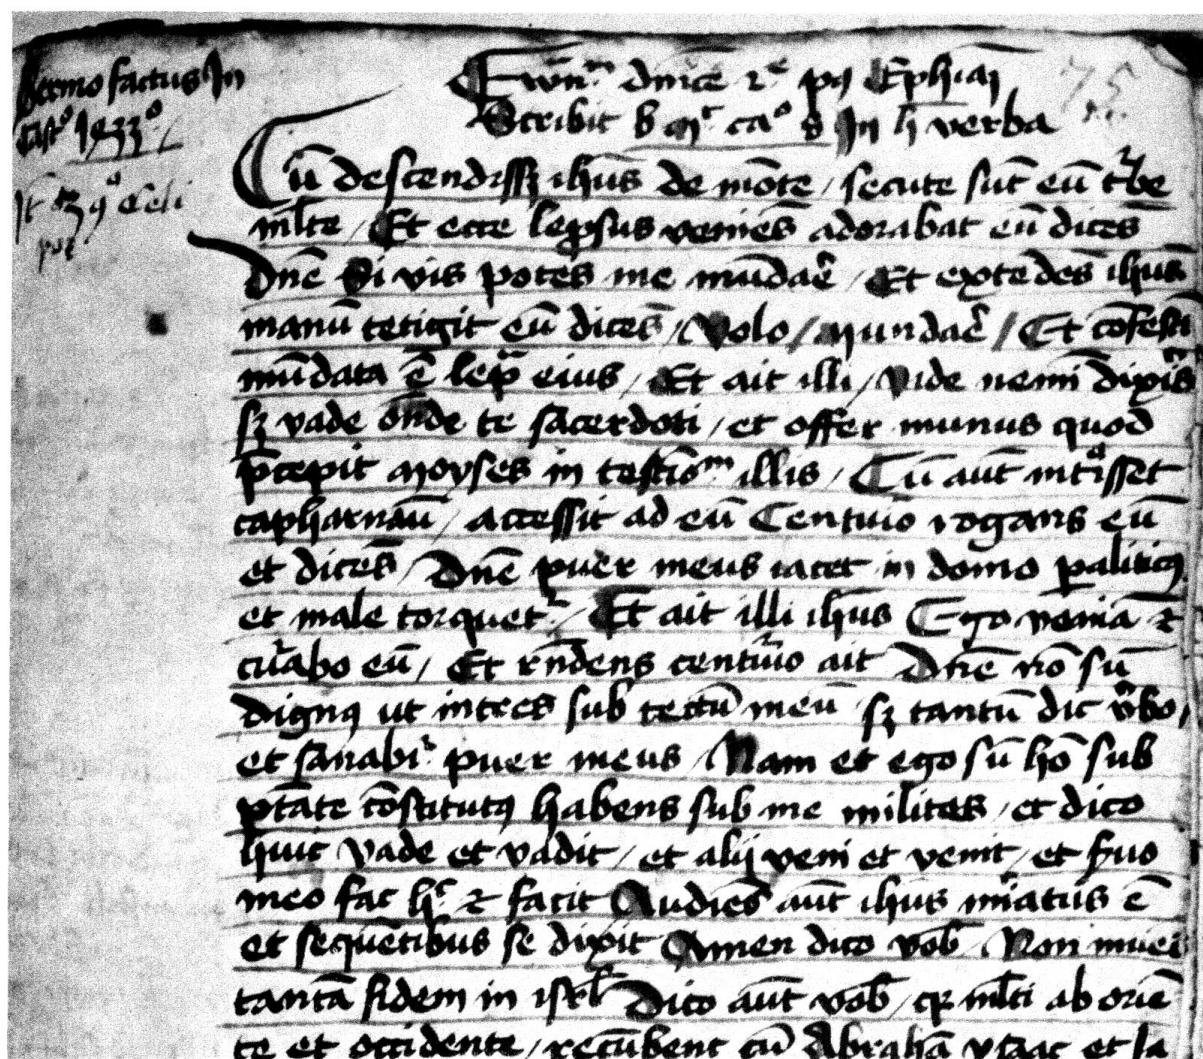 Sermo factus In
Cast° 1933°
Ewm dnice 2e pq Ephiaȝ
75
Scribit b mt ca° 8 In h verba
Cū descendissȝ ihūs de mōte / secute sūt eū tbe
mlte / Et ecce lepsus veniēs adorabat eū dicēs
Dnē Si vis potes me mūdare / Et extēdēs ihūs
manū tetigit eū dicēs / Volo / Mundare / Et cōfesti
mūdata ē lepa eius / Et ait illi / Vide nemi dixis
sȝ vade ōnde te sacerdoti / et offer munus quod
pcepit Moyses in testiom illis / Cū aūt intasset
capharnaū / accessit ad eū Centuio rogans eū
et dicēs / Dnē puer meus iacet in domo paliticꝯ
et male torquetr / Et ait illi ihūs Ego veniā ⁊
cuabo eū / Et rndens centuio ait Dnē nō sū
dignꝯ ut intres sub tectū meū sȝ tantū dic vbo /
et sanabir puer meus / Nam et ego sū hō sub
ptāte cōstitutꝯ habens sub me milites / et dico
huic Vade et vadit / et alij veni et venit / et suo
meo fac hc ⁊ facit Audiēs aūt ihūs miatus ē
et sequētibus se dixit Amen dico vob / Non inueī
tantā fidem in isrl Dico aūt vob / qꝛ mlti ab oriē
te et occidente / recūbent cū Abrahā ysaac et Ia